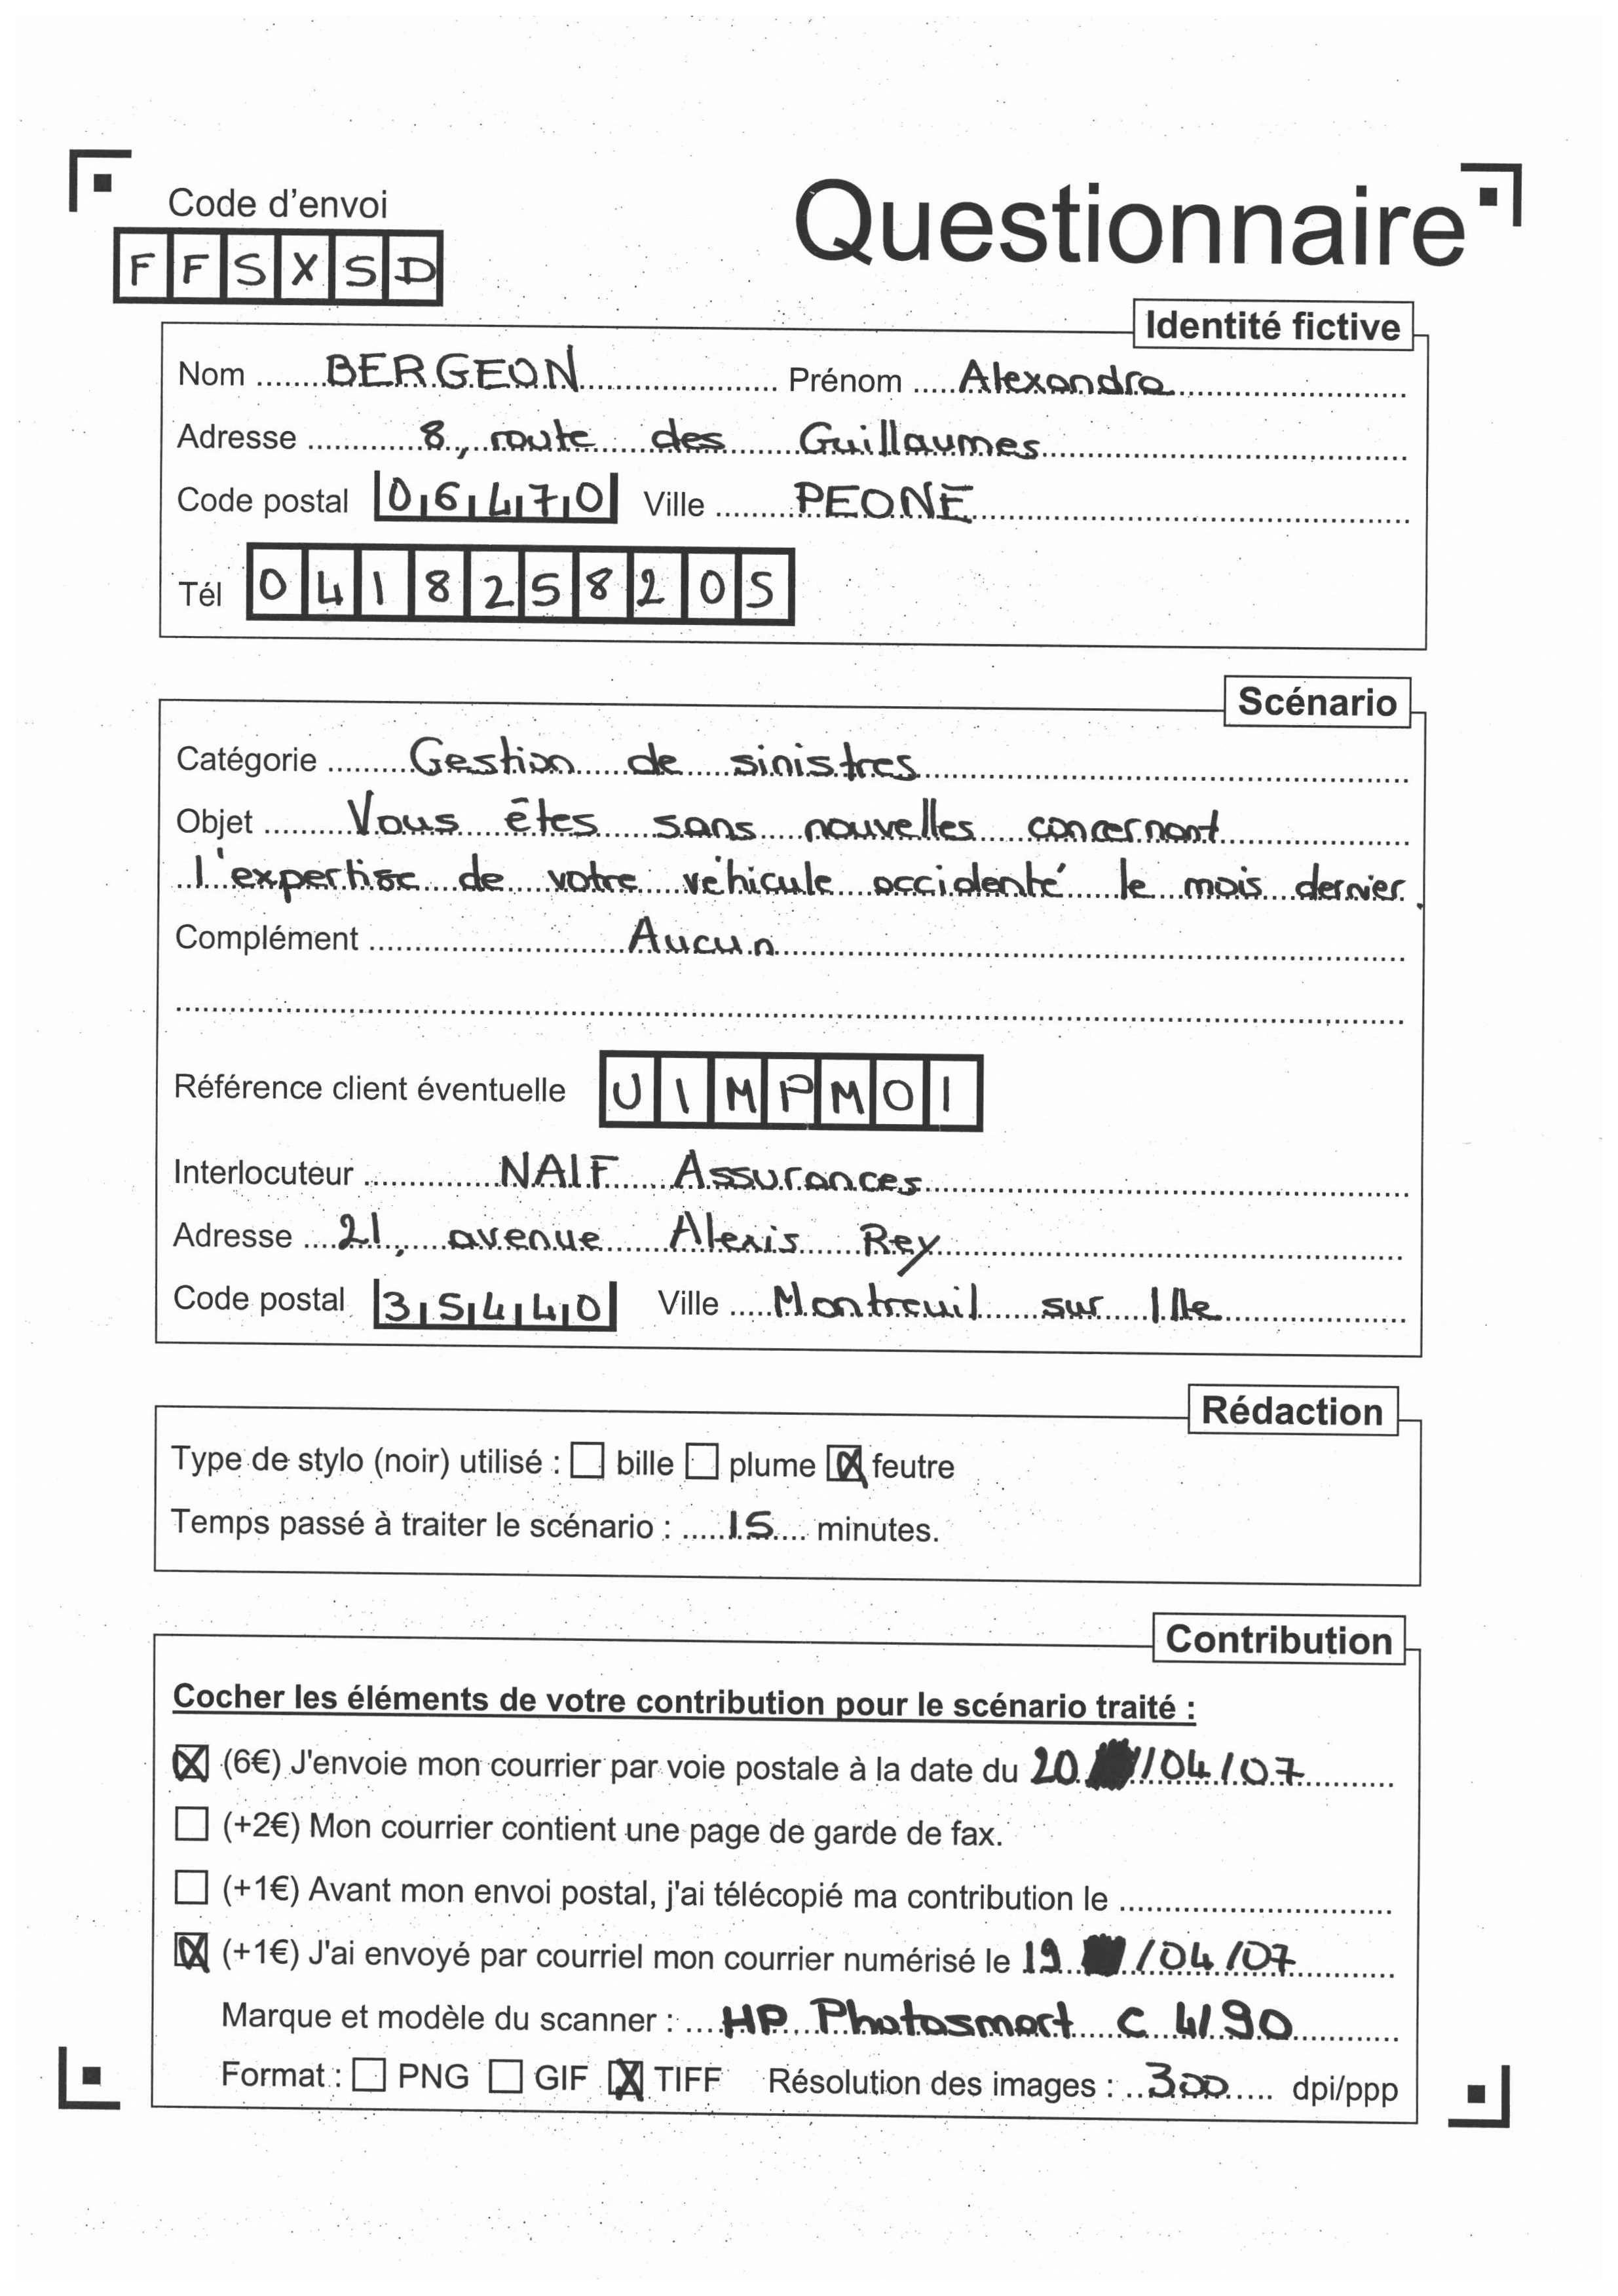 Code d'envoi
Questionnaire
F F S X S D
Identité fictive
Nom BERGEON Prénom Alexandra
Adresse 8, route des Guillaumes
Code postal 06470 Ville PEONE
Tél 0418258205
Scénario
Catégorie Gestion de sinistres
Objet Vous êtes sans nouvelles concernant
l'expertise de votre véhicule accidenté le mois dernier.
Complément Aucun
Référence client éventuelle U I M P M O I
Interlocuteur NAIF Assurances
Adresse 21, avenue Alexis Rey
Code postal 35440 Ville Montreuil sur Ille
Rédaction
Type de stylo (noir) utilisé : ☐ bille ☐ plume ☒ feutre
Temps passé à traiter le scénario : 15 minutes.
Contribution
Cocher les éléments de votre contribution pour le scénario traité :
☒ (6€) J'envoie mon courrier par voie postale à la date du 20 /04/07
☐ (+2€) Mon courrier contient une page de garde de fax.
☐ (+1€) Avant mon envoi postal, j'ai télécopié ma contribution le
☒ (+1€) J'ai envoyé par courriel mon courrier numérisé le 19 /04/07
Marque et modèle du scanner : HP Photosmart C 4190
Format : ☐ PNG ☐ GIF ☒ TIFF Résolution des images : 300 dpi/ppp